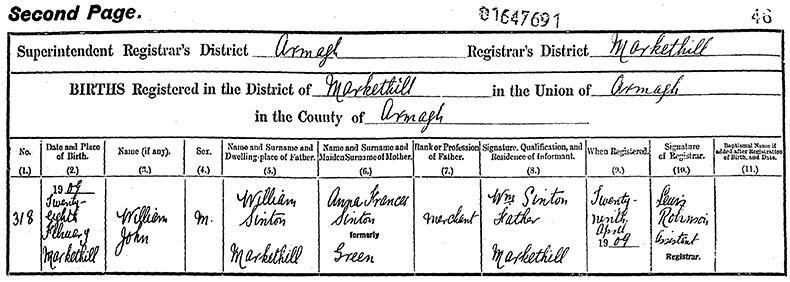 Second Page. 01647691 46
Superintendent Registrar's District Armagh Registrar's District Markethill
BIRTHS Registered in the District of Markethill in the Union of Armagh
in the County of Armagh
No. Date and Place of Birth. Name (if any). Sex. Name and Surname and Dwelling-place of Father. Name and Surname and Maiden Surname of Mother. Rank or Profession of Father. Signature, Qualification, and Residence of Informant. When Registered. Signature of Registrar. Baptismal Name if added after Registration of Birth, and Date.
(1.) (2.) (3.) (4.) (5.) (6.) (7.) (8.) (9.) (10.) (11.)
318 1909 Twenty-eighth February Markethill William John M. William Sinton Markethill Anna Frances Sinton formerly Green Merchant Wm Sinton Father Markethill Twenty-ninth April 1909 Robinson Assistant Registrar.